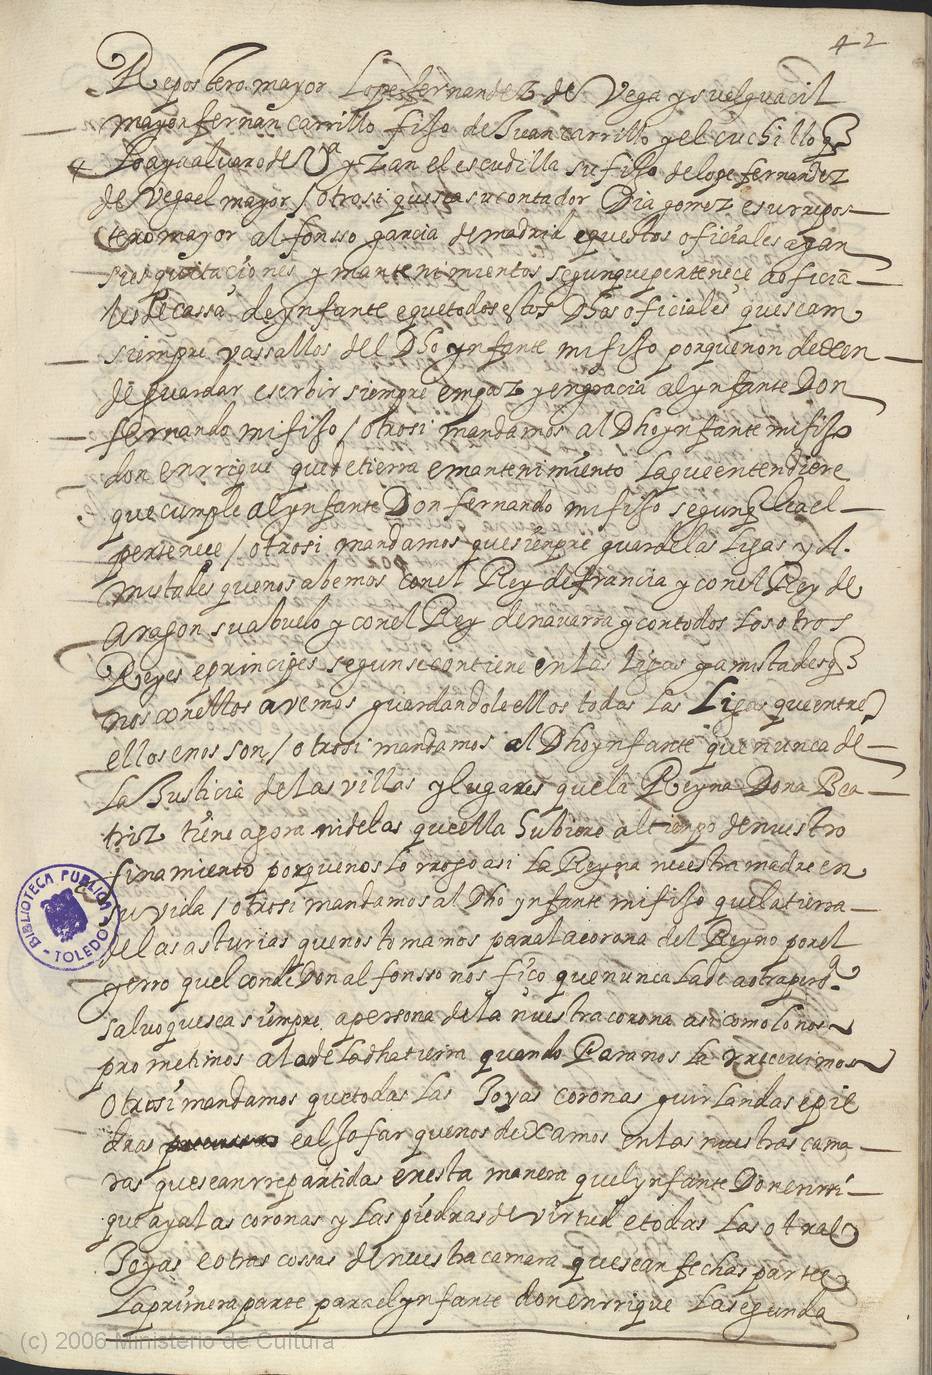 42
Repostero mayor Lopefernandez de Vega ysu elguacil
mayor fernan carrillo fijo de Juan carrillo y el cuchillo q
loaya alvaro de y Zan el escudilla su fijo de lope fernandez
de Vega el mayor / otrosi que sea su contador Dia gomez e su rrepos
tero mayor alfonsso garcia de madrid e questos oficiales ayan
sus quitaciones y mantenimientos segun que pertenece a oficia
les de cassa de ynfante e que todos estos Dhos oficiales que sean
siempre vassallos del Dho ynfante mi fijo porque non dexen
de guardar e serbir siempre em paz y en gracia al ynfante Don
fernando mi fijo / otrosi mandamos al Dho ynfante mi fijo
don enrrique que de tierra e mantenimiento la que entendiere
que cumple al ynfante Don fernando mi fijo segun q a el
pertenece / otrosi mandamos que sienpre guarde las ligas y A.
mistades que nos abemos con el Rey de francia y con el Rey de
aragon su abuelo y con el Rey de navarra y con todos los otros
Reyes e principes segun se contiene en las ligas y amistades q
nos con ellos avemos guardandole ellos todas las Ligas que entre
ellos e nos son / otrosi mandamos al Dho ynfante que nunca de
la Justicia de las villas y lugares que la Reyna Dona Bea
triz tiene agora ni de las que ella hubiere al tienpo de nuestro
finamiento porque nos lo rrogo asi la Reyna nuestra madre en
su vida / otrosi mandamos al Dho ynfante mi fijo que la tierra
de las asturias que nos tomamos para la corona del Reyno por el
yerro quel conde Don alfonsso nos fiço que nunca la de a otra
salvo que sea sienpre a persona de la nuestra corona asi como lo nos
prometimos a la de la dha tierra quando para nos la rrecevimos
Otrosi mandamos que todas las Joyas coronas guirlandas e pie
dras e aljofar que nos dexamos en las nuestras cama
ras que sean rrepartidas en esta manera quel ynfante Don enrri
que aya las coronas y las piedras de virtud e todas las otras
Joyas e otras cossas de nuestra camara que sean fechas partes
La primera parte para el ynfante don enrrique La segunda
BIBLIOTECA PUBLICA - TOLEDO -
(c) 2006 Ministerio de Cultura